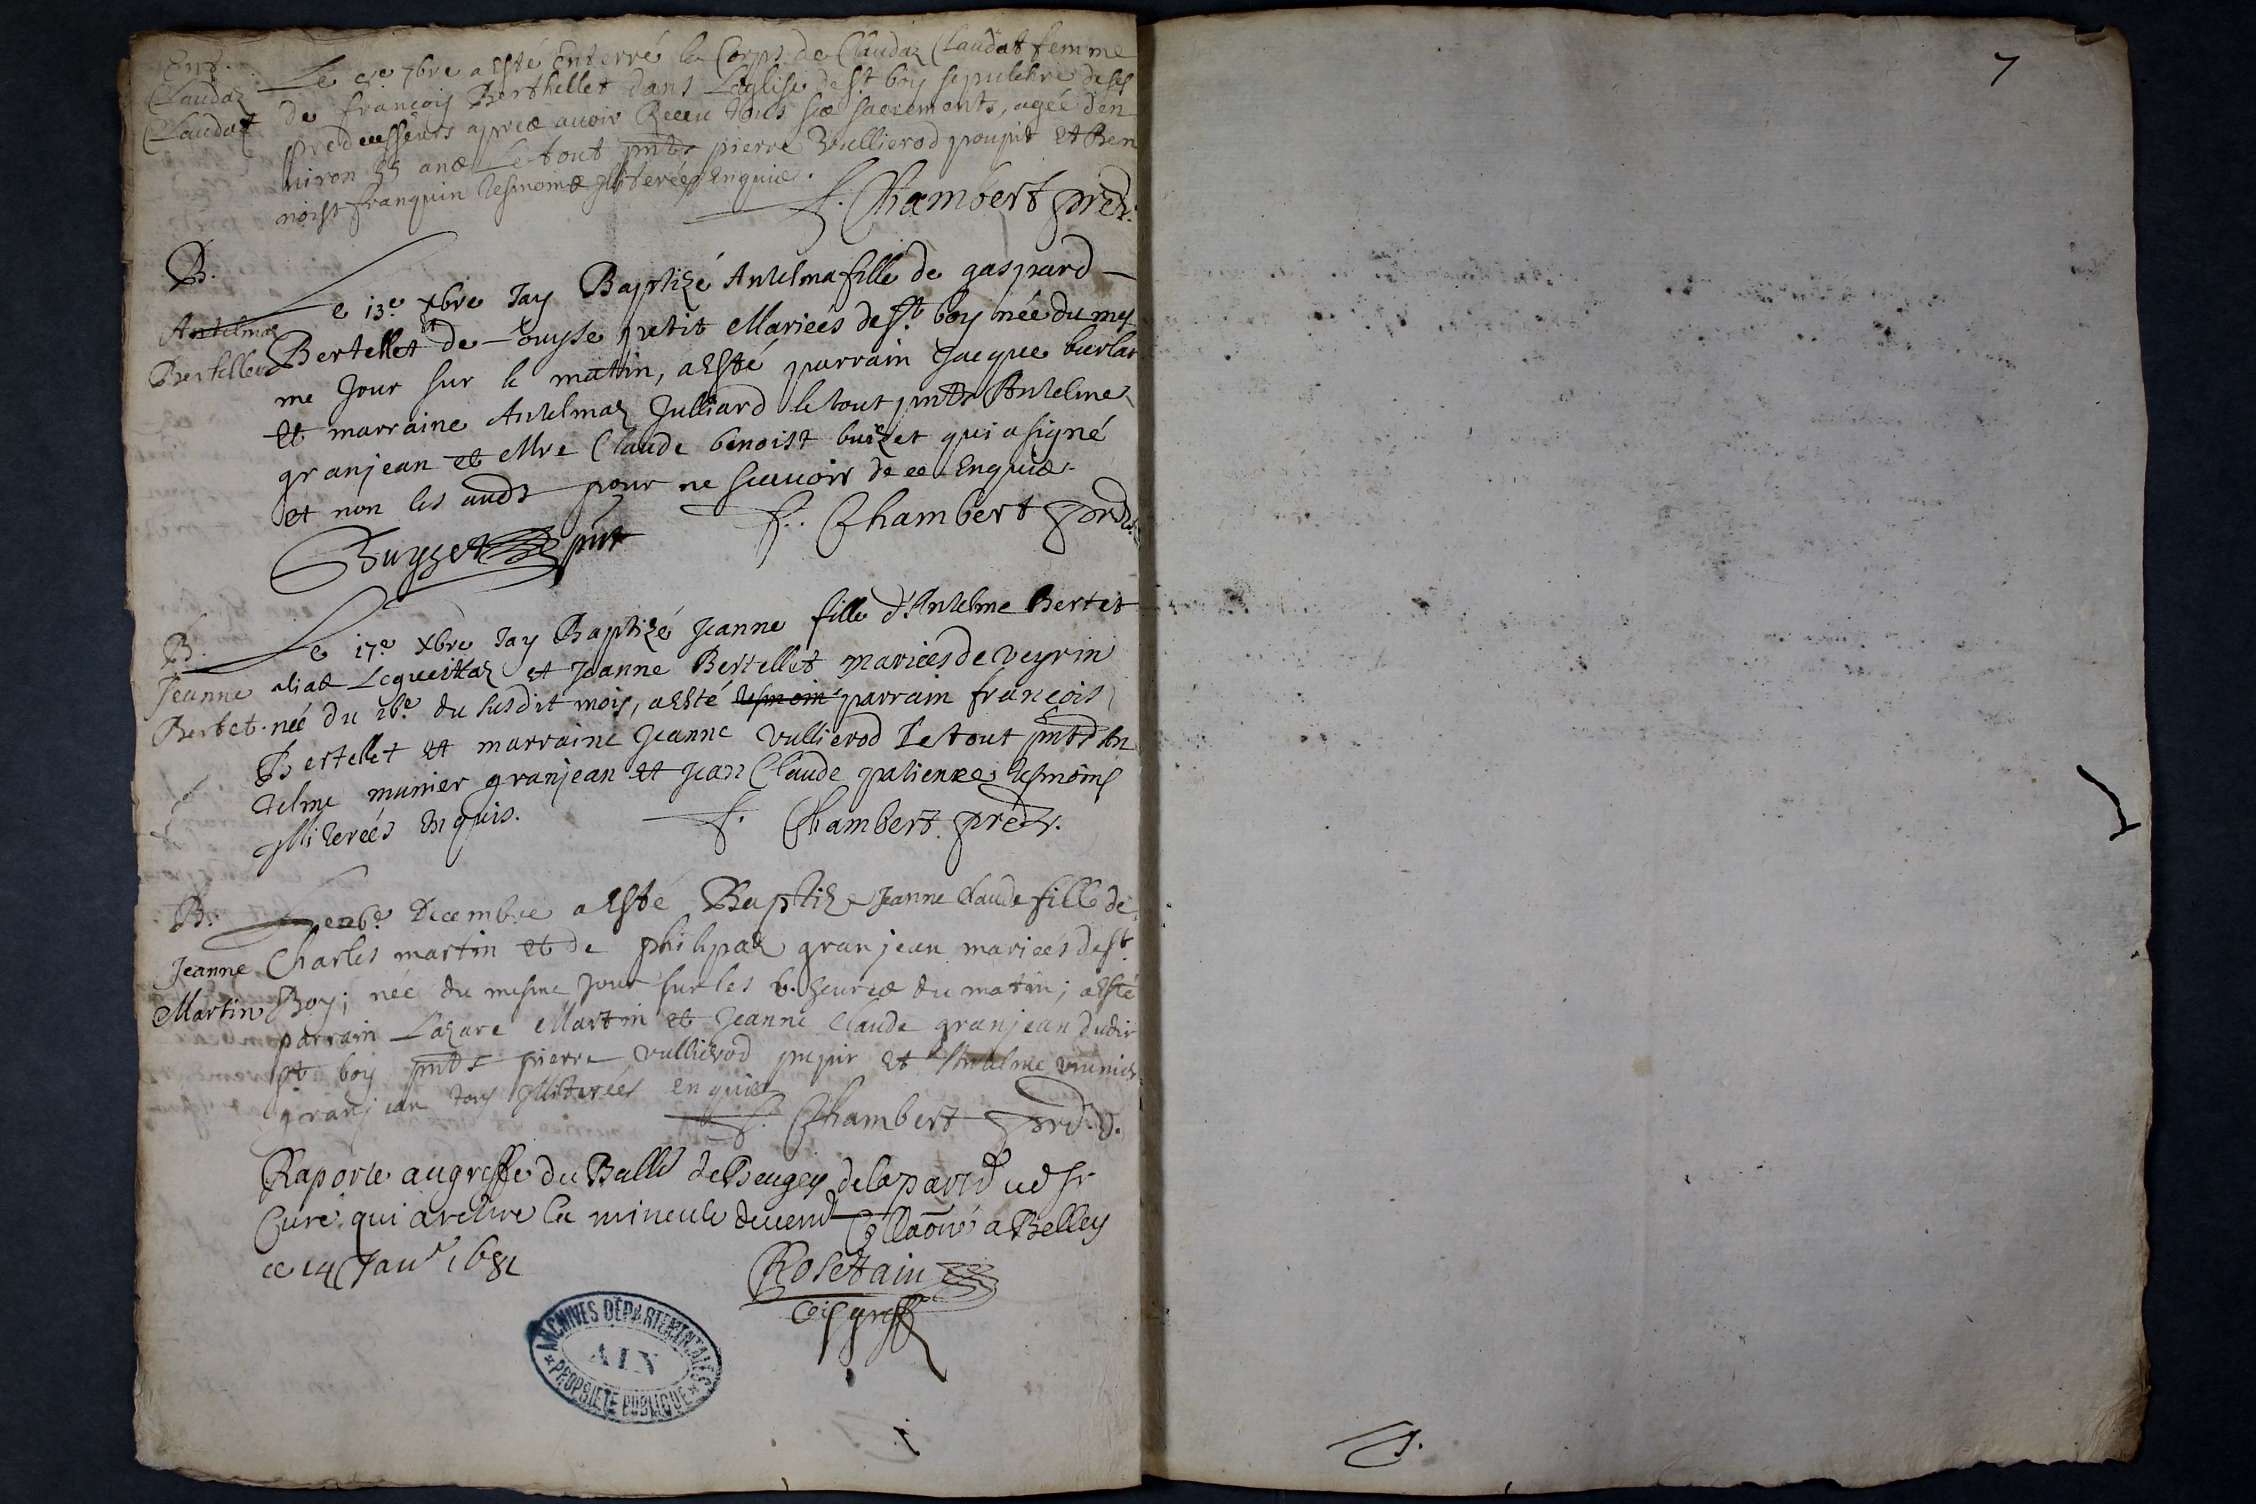 Ent.
Claudaz
Claudat
Le 7bre a esté Enterré le Corps de Claudaz Claudat femme
de françois Berthellet dans L'eglise de st boy sepulchre de ses
predecesseurs apres avoir Receu tous sacrements, agée d'en
viron 55 ans Le tout pnts pierre Vullierod et Ben
noist franquin tesmoins illiterees Enquis.
f. Chambert
B.
Antelmaz
Bertellet
Le 13e xbre Jay Baptizé Antelma fille de gaspard
Bertellet et de Louyse petit Mariees de st boy née du mes
me Jour sur le matin, a esté parrain Jacque burlat
et marraine Antelmaz Julliard le tout pnts Antelme
granjean et Mre Claude benoist buizet qui a signé
et non les auds pour ne scavoir de ce Enquis.
f. Chambert
Buyzet pnt
B.
Jeanne
Bertet
Le 17e xbre Jay Baptizé Jeanne fille d'Antelme Bertet
alias Lequettaz et Joanne Bertellet mariees de veyrin
née du 16e du susdit mois, a esté tesmoin parrain francois
Bertellet et marraine Jeanne Vullierod Le tout pnts An
telme munier granjean et Jean Claude patience tesmoins
illiterées Enquis.
f. Chambert
B.
Jeanne
Martin
Le 26e Decembre a esté Baptizé Jeanne Claude fille de
Charles martin et de philipaz granjean mariees de st
Boy; née du mesme Jour sur les v. heures du matin; a esté
parrain Lazare Martin et Jeanne Claude granjean dudit
st boy pnts pierre Vullierod et Antelme munier
granjean tous illiterées enquis
f. Chambert
Raporté au greffe du Balle de Beugey de la part du sr
Curé qui a retire la minculle Collaoné a Belley
ce 14 Janr 1681
Rosettain
Cois greff
ARCHIVES DÉPARTEMENTALES
AIN
PROPRIÉTÉ PUBLIQUE
7